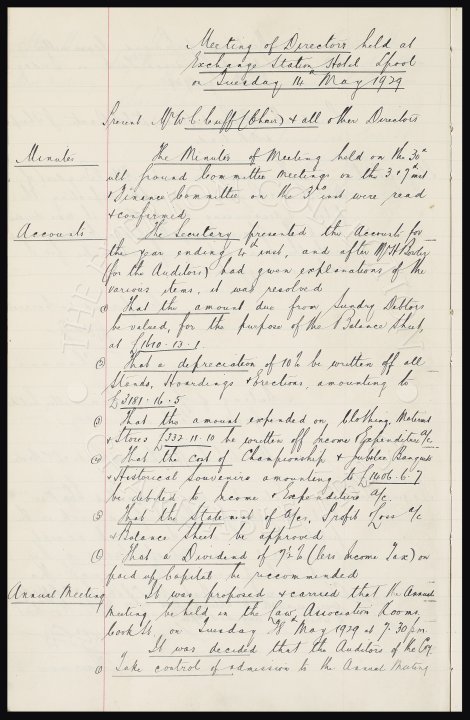 Meeting of Directors held at
Exchange Station Hotel Lpool
on Tuesday 14th May 1929
Present Mr W C Cuff (Chair) & all other Directors
Minutes
The Minutes of Meeting held on the 30th
ult Ground Committee Meetings on the 3 & 7th inst
& Finance Committee on the 3rd inst were read
& confirmed
Accounts
The Secretary presented the Accounts for
the year ending 4th inst, and after Mr H
(for the Auditors) had given explanations of the
various items, it was resolved
(1) That the amount due from Sundry Debtors
be valued, for the purpose of the Balance Sheet,
at £1610-13-1.
(2) That a depreciation of 10% be written off all
Stands, Hoardings & Erections, amounting to
£3181-16-5
(3) That the amount expended on Clothing, Materials
& Stores £332-11-10 be written off Income & Expenditure a/c
(4) That the cost of Championship & Jubilee Banquets
& Historical Souvenirs amounting to £1406-6-7
be debited to Income & Expenditure a/c
(5) That the Statement of a/cs, Profit & Loss a/c
& Balance Sheet be approved
(6) That a Dividend of 7½% (less Income Tax) on
paid up Capital be recommended
Annual Meeting
It was proposed & carried that the Annual
Meeting be held in the Law Association Rooms
Cook St on Tuesday 28th May 1929 at 7.30 pm.
It was decided that the Auditors of the Coy
(1) Take control of admission to the Annual Meeting